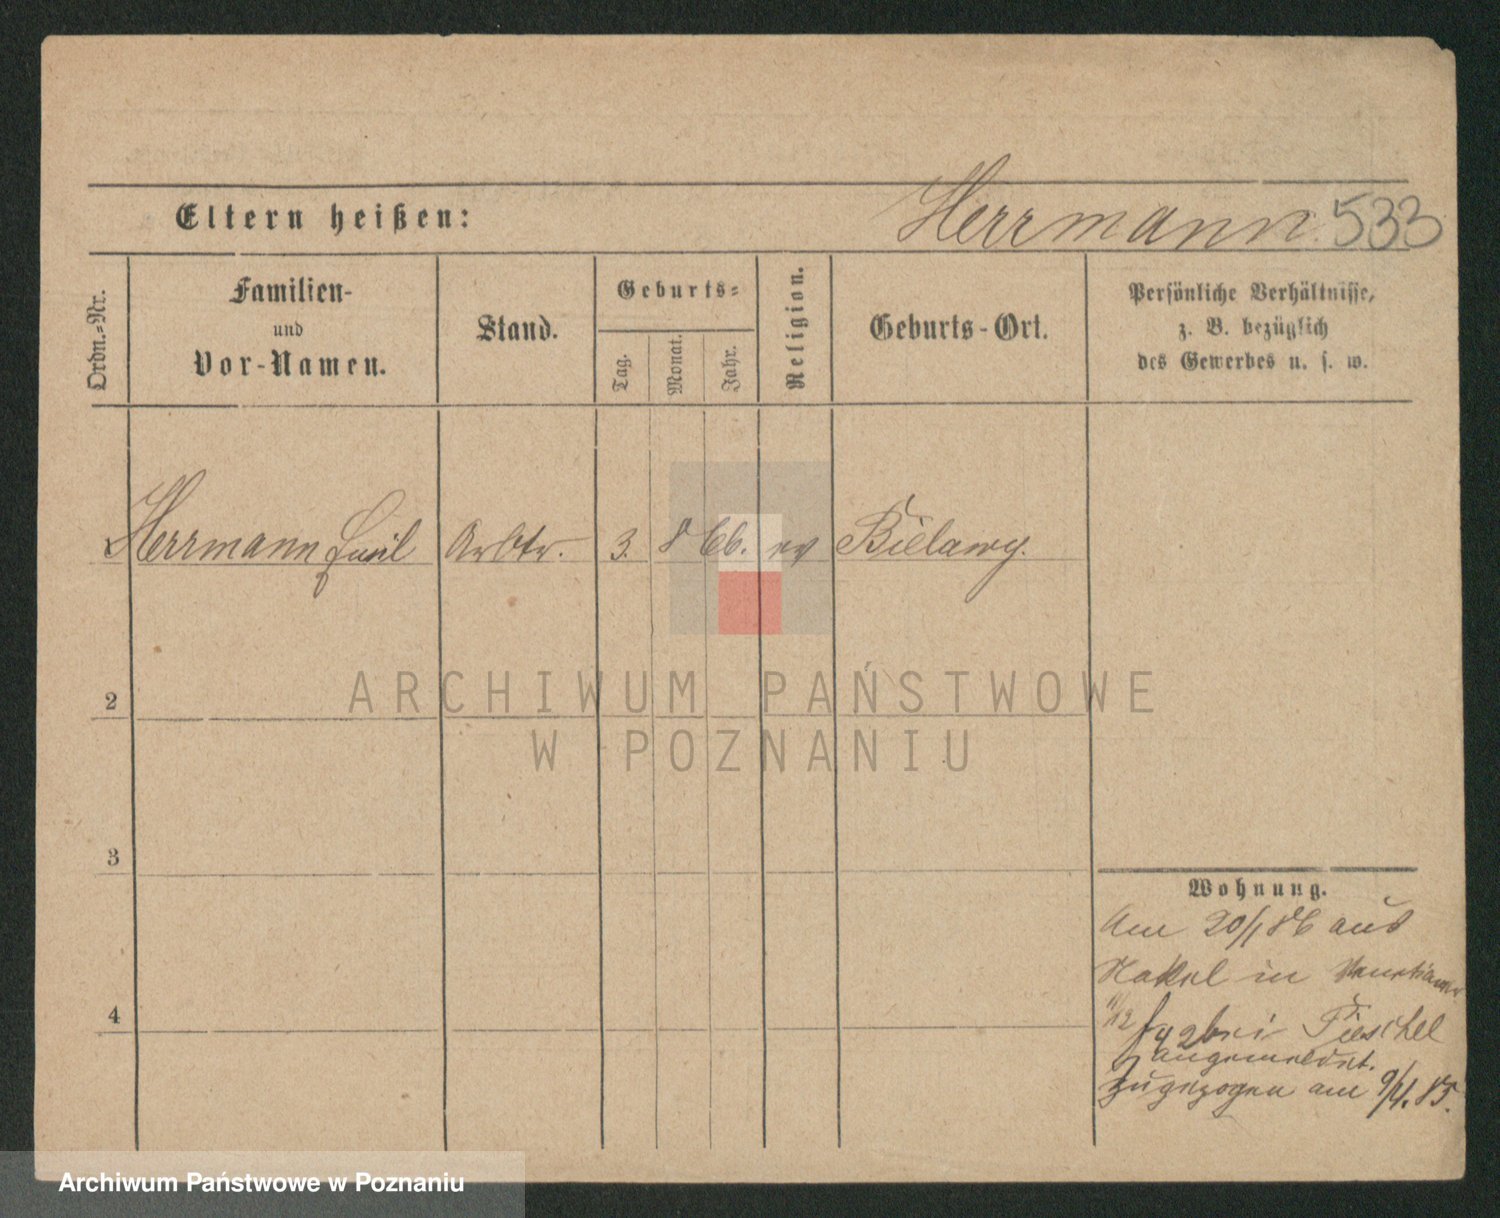 Eltern heißen:
Herrmann. 533
Ordn.=Nr.
Familien-
und
Vor-Namen.
Stand.
Geburts=
Tag.
Monat.
Jahr.
Religion.
Geburts-Ort.
Persönliche Verhältnisse,
z. B. bezüglich
des Gewerbes u. s. w.
1 Herrmann Emil Arbtr. 3. 8 66. ev Bielawy.
ARCHIWUM PAŃSTWOWE
W POZNANIU
2
3
4
Wohnung.
Am 20/1 86 aus
Nakel in
11/12 bei
angemeldet.
Zugezogen am 9/1. 85.
Archiwum Państwowe w Poznaniu